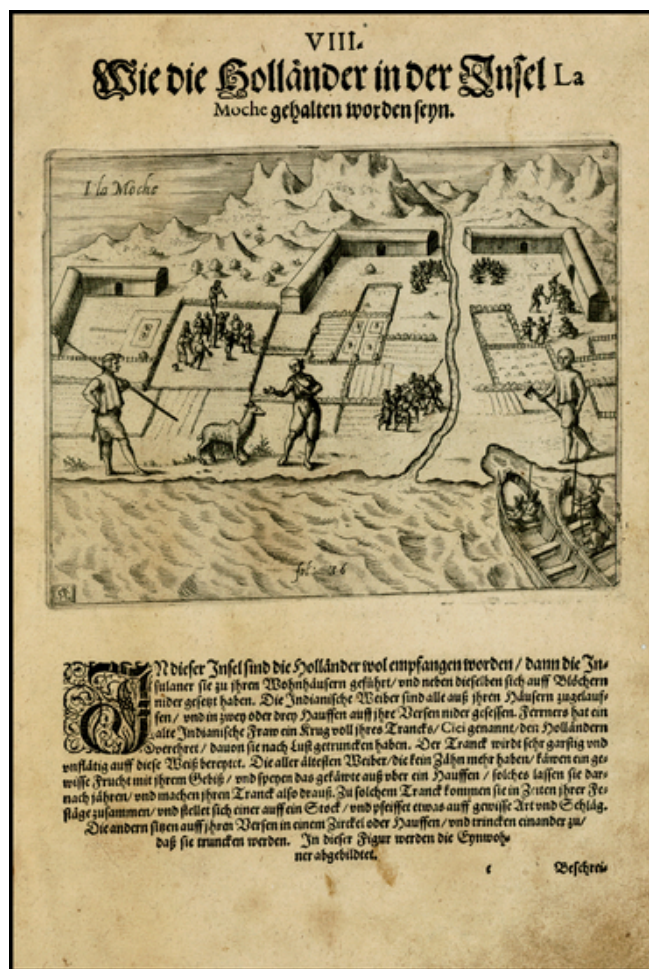 VIII.
Wie die Holländer in der Insel La
Moche gehalten worden seyn.
I la Moche
fol: 36
IN dieser Insel sind die Holländer wol empfangen worden / dann die In-
sulaner sie zu jhren Wohnhäusern geführt / vnd neben dieselben sich auff Blöchern
nider gesetzt haben. Die Indianische Weiber sind alle auß jhren Häusern zugelauf-
fen / vnd in zwey oder drey Hauffen auff jhre Versen nider gesessen. Ferrners hat ein
alte Indianische Fraw ein Krug voll jhres Trancks / Cici genannt / den Holländern
verehret / dauon sie nach Lust getruncken haben. Der Tranck wirdt sehr garstig vnd
vnflätig auff diese Weiß bereytet. Die aller ältesten Weiber / die kein Zähn mehr haben / käwen ein ge-
wisse Frucht mit jhrem Gebiß / vnd speyen das gekäwte auß vber ein Hauffen / solches lassen sie dar-
nach jähren / vnd machen jhren Tranck also drauß. Zu solchem Tranck kommen sie in Zeiten jhrer Fe-
stäge zusammen / vnd stellet sich einer auff ein Stock / vnd pfeiffet etwas auff gewisse Art vnd Schläg.
Die andern sitzen auff jhren Versen in einem Zirckel oder Hauffen / vnd trincken einander zu /
daß sie truncken werden. In dieser Figur werden die Eynwoh-
ner abgebildtet.
c Beschrei-